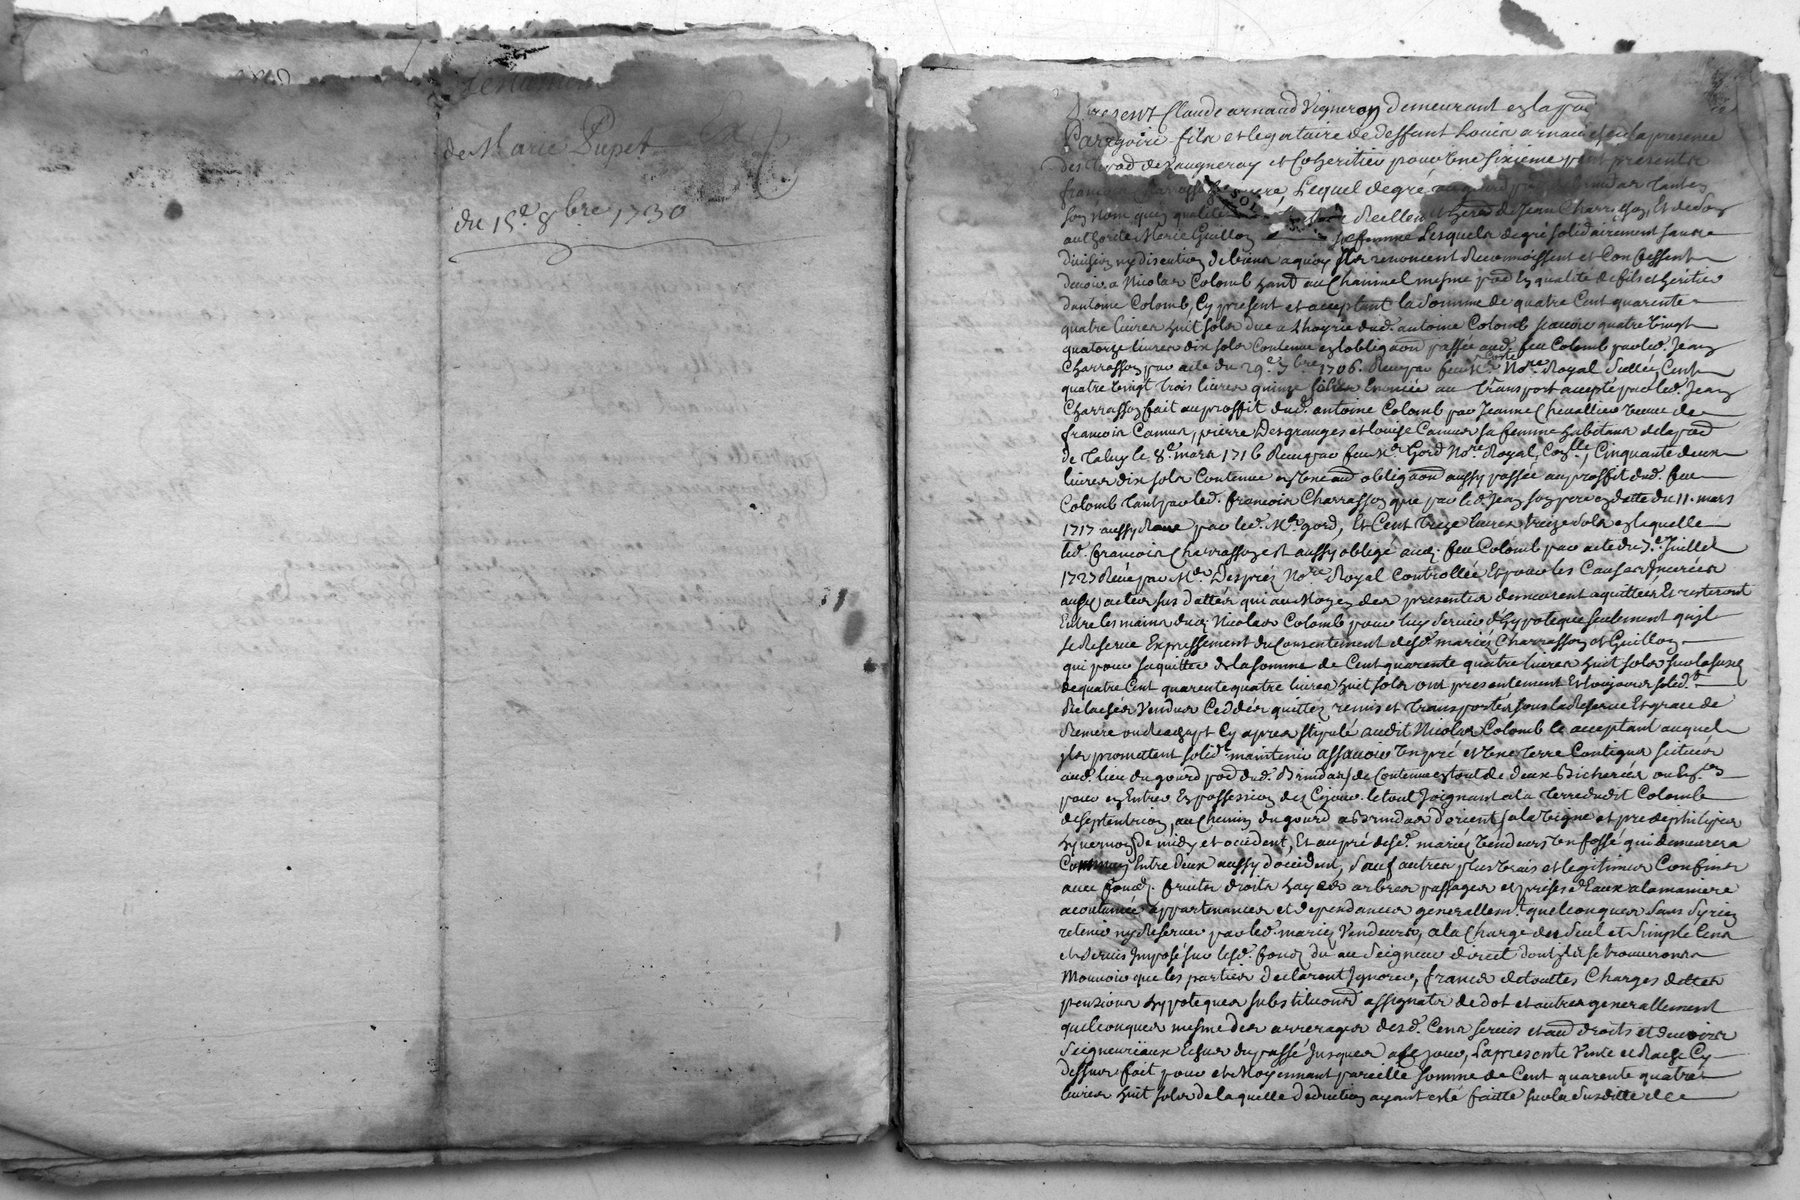 Testament
de Marie Pupet
du 15e. 8bre 1730
Present Claude arnaud Vigneron demeurant en la par
Paregoire fils et legataire de deffunt Louis arnaud, et en la presence
de Vaugneray et Coheritier pour Une Sixieme part presents
Lequel degré
son nom qu'en qualité de Jean Charrasson, Et de son
authorité Marie Guillon sa femme Lesquels de gré solidairement sans
division ny discution de biens a quoy Ils renoncent Reconnoissent et Confessent
devoir a Nicolas Colomb hant. au Chainnel mesme parr. En qualité de fils et heritier
dantoine Colomb, Cy present et acceptant la Somme de quatre Cent quarente
quatre livres huit sols due a lhoyrie dud. antoine Colomb scavoir quatre Vingt
quatorze livres dix sols Contenue en lobligaon passée aud. feu Colomb par led. Jean
Charrasson par acte du 29e. 7bre 1706. Reçu par feu Me. Coste Nore. Royal Scellée, Cent
quatre Vingt Trois livres quinze sols Enoncée au Transport accepté par led. Jean
Charrasson fait au proffit dud. antoine Colomb par Jeanne Chevallier veuve de
francois Camus, pierre Desgranges et louise Camus sa femme habitans de la par.
de Taluy le 8e. mars 1716 Reçu par feu Me Gord Nore. Royal, Conllé, Cinquante deux
livres dix sols Contenue en Une aud. obligaon aussy passée au proffit dud. feu
Colomb Tant par led. francois Charrasson que par led. Jean son pere en datte du 11. mars
1717 aussy Reçue par led. Me. gord, Et Cent Treze livres treize sols en laquelle
led. francois Charrasson est aussy obligé aud. feu Colomb par acte du 7e. Juillet
1727 Reçue par Me. Després Nore. Royal Controllée Et pour les Causes Inserées
ausd. actes sus dattés qui au Moyen des presentes demeurent aquittées Et resteront
Entre les mains dud. Nicolas Colomb pour luy Servir d'hypoteque seulement quil
se Reserve Expressement du Consentement desd. mariés Charrasson et Guillon
qui pour saquitter de la somme de Cent quarente quatre livres huit sols sur la susd.
de quatre Cent quarente quatre livres huit sols ont presentement Et toujours solid.
Relaché Vendus Ceddés quittez remis et transportés sous la Reserve Et grace de
Remere ou Reachapt Cy apres stipulé audit Nicolas Colomb Ce acceptant auquel
Ils promettent solid. maintenir assavoir Un pré et Une Terre Contigus scitués
aud. lieu du gourd parr. dud. Brindas, de Contenue en tout de deux Bicherées ou Env.
pour en Entrer En possession des Ce jour. le tout Joignant a la Terre dudit Colomb
de septentrion, au Chemin du gourd a Brindas d'orient, a la Vigne et pré de philipes
hyvernon de midy et occident, Et au pré desd. mariés Vendeurs Un fossé qui demeurera
Commun Entre deux aussy d'occident, Sauf autres plus Vrais et legitimes Confins
avec fond. fruits droits hayes arbres passages et prises d'Eaux a la maniere
acoutumée appartenances et dependances generallemt. quelconques Sans s'y rien
retenir ny Reserver par led. mariés Vendeurs, a la Charge du Seul et Simple Cens
et Servis Imposé sur lesd. fonds du au Seigneur direct dont ils se trouveronts
Mouvoir que les parties declarent Ignorer, francs de touttes Charges dettes
pensions hypoteques substituons assignats de dot et autres generallement
quelconques mesme des arrerages desd. Cens servis et aud. droits et devoirs
Seigneuriaux Echus du passé Jusques a Ce jour, La presente Vente et Relache Cy
dessus fait pour et Moyennant pareille somme de Cent quarente quatre
livres huit sols de laquelle deduction ayant esté faitte sur la Susditte de